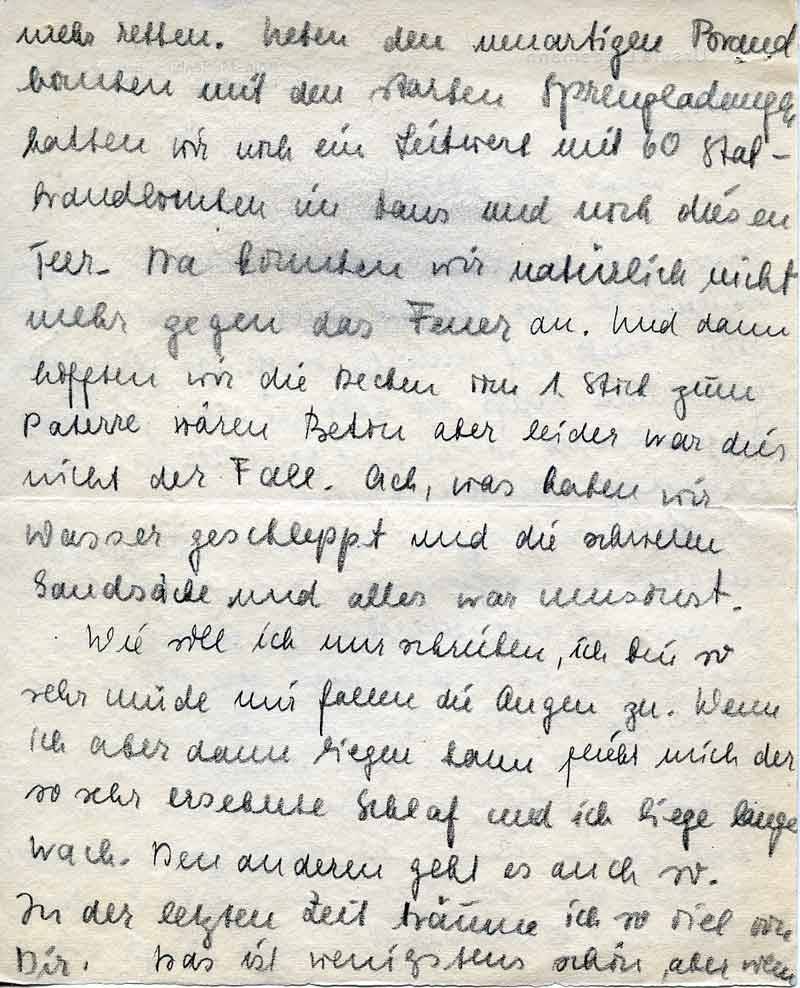 mehr retten. Neben den neuartigen Brand
bomben mit den starken Sprengladungen
hatten wir noch ein Leitwerk mit 60 Stab-
brandbomben im Haus und noch diesen
Teer. Da konnten wir natürlich nicht
mehr gegen das Feuer an. Und dann
hofften wir die Decken vom 1. Stock zum
Paterre wären Beton aber leider war dies
nicht der Fall. Ach, was haben wir
Wasser geschleppt und die schweren
Sandsäcke und alles war umsonst.
Wie soll ich nur schreiben, ich bin so
sehr müde mir fallen die Augen zu. Wenn
ich aber dann liegen kann flieht mich der
so sehr ersehnte Schlaf und ich liege lange
wach. Den anderen geht es auch so.
In der letzten Zeit träume ich so viel von
Dir. Das ist wenigstens schön, aber wenn